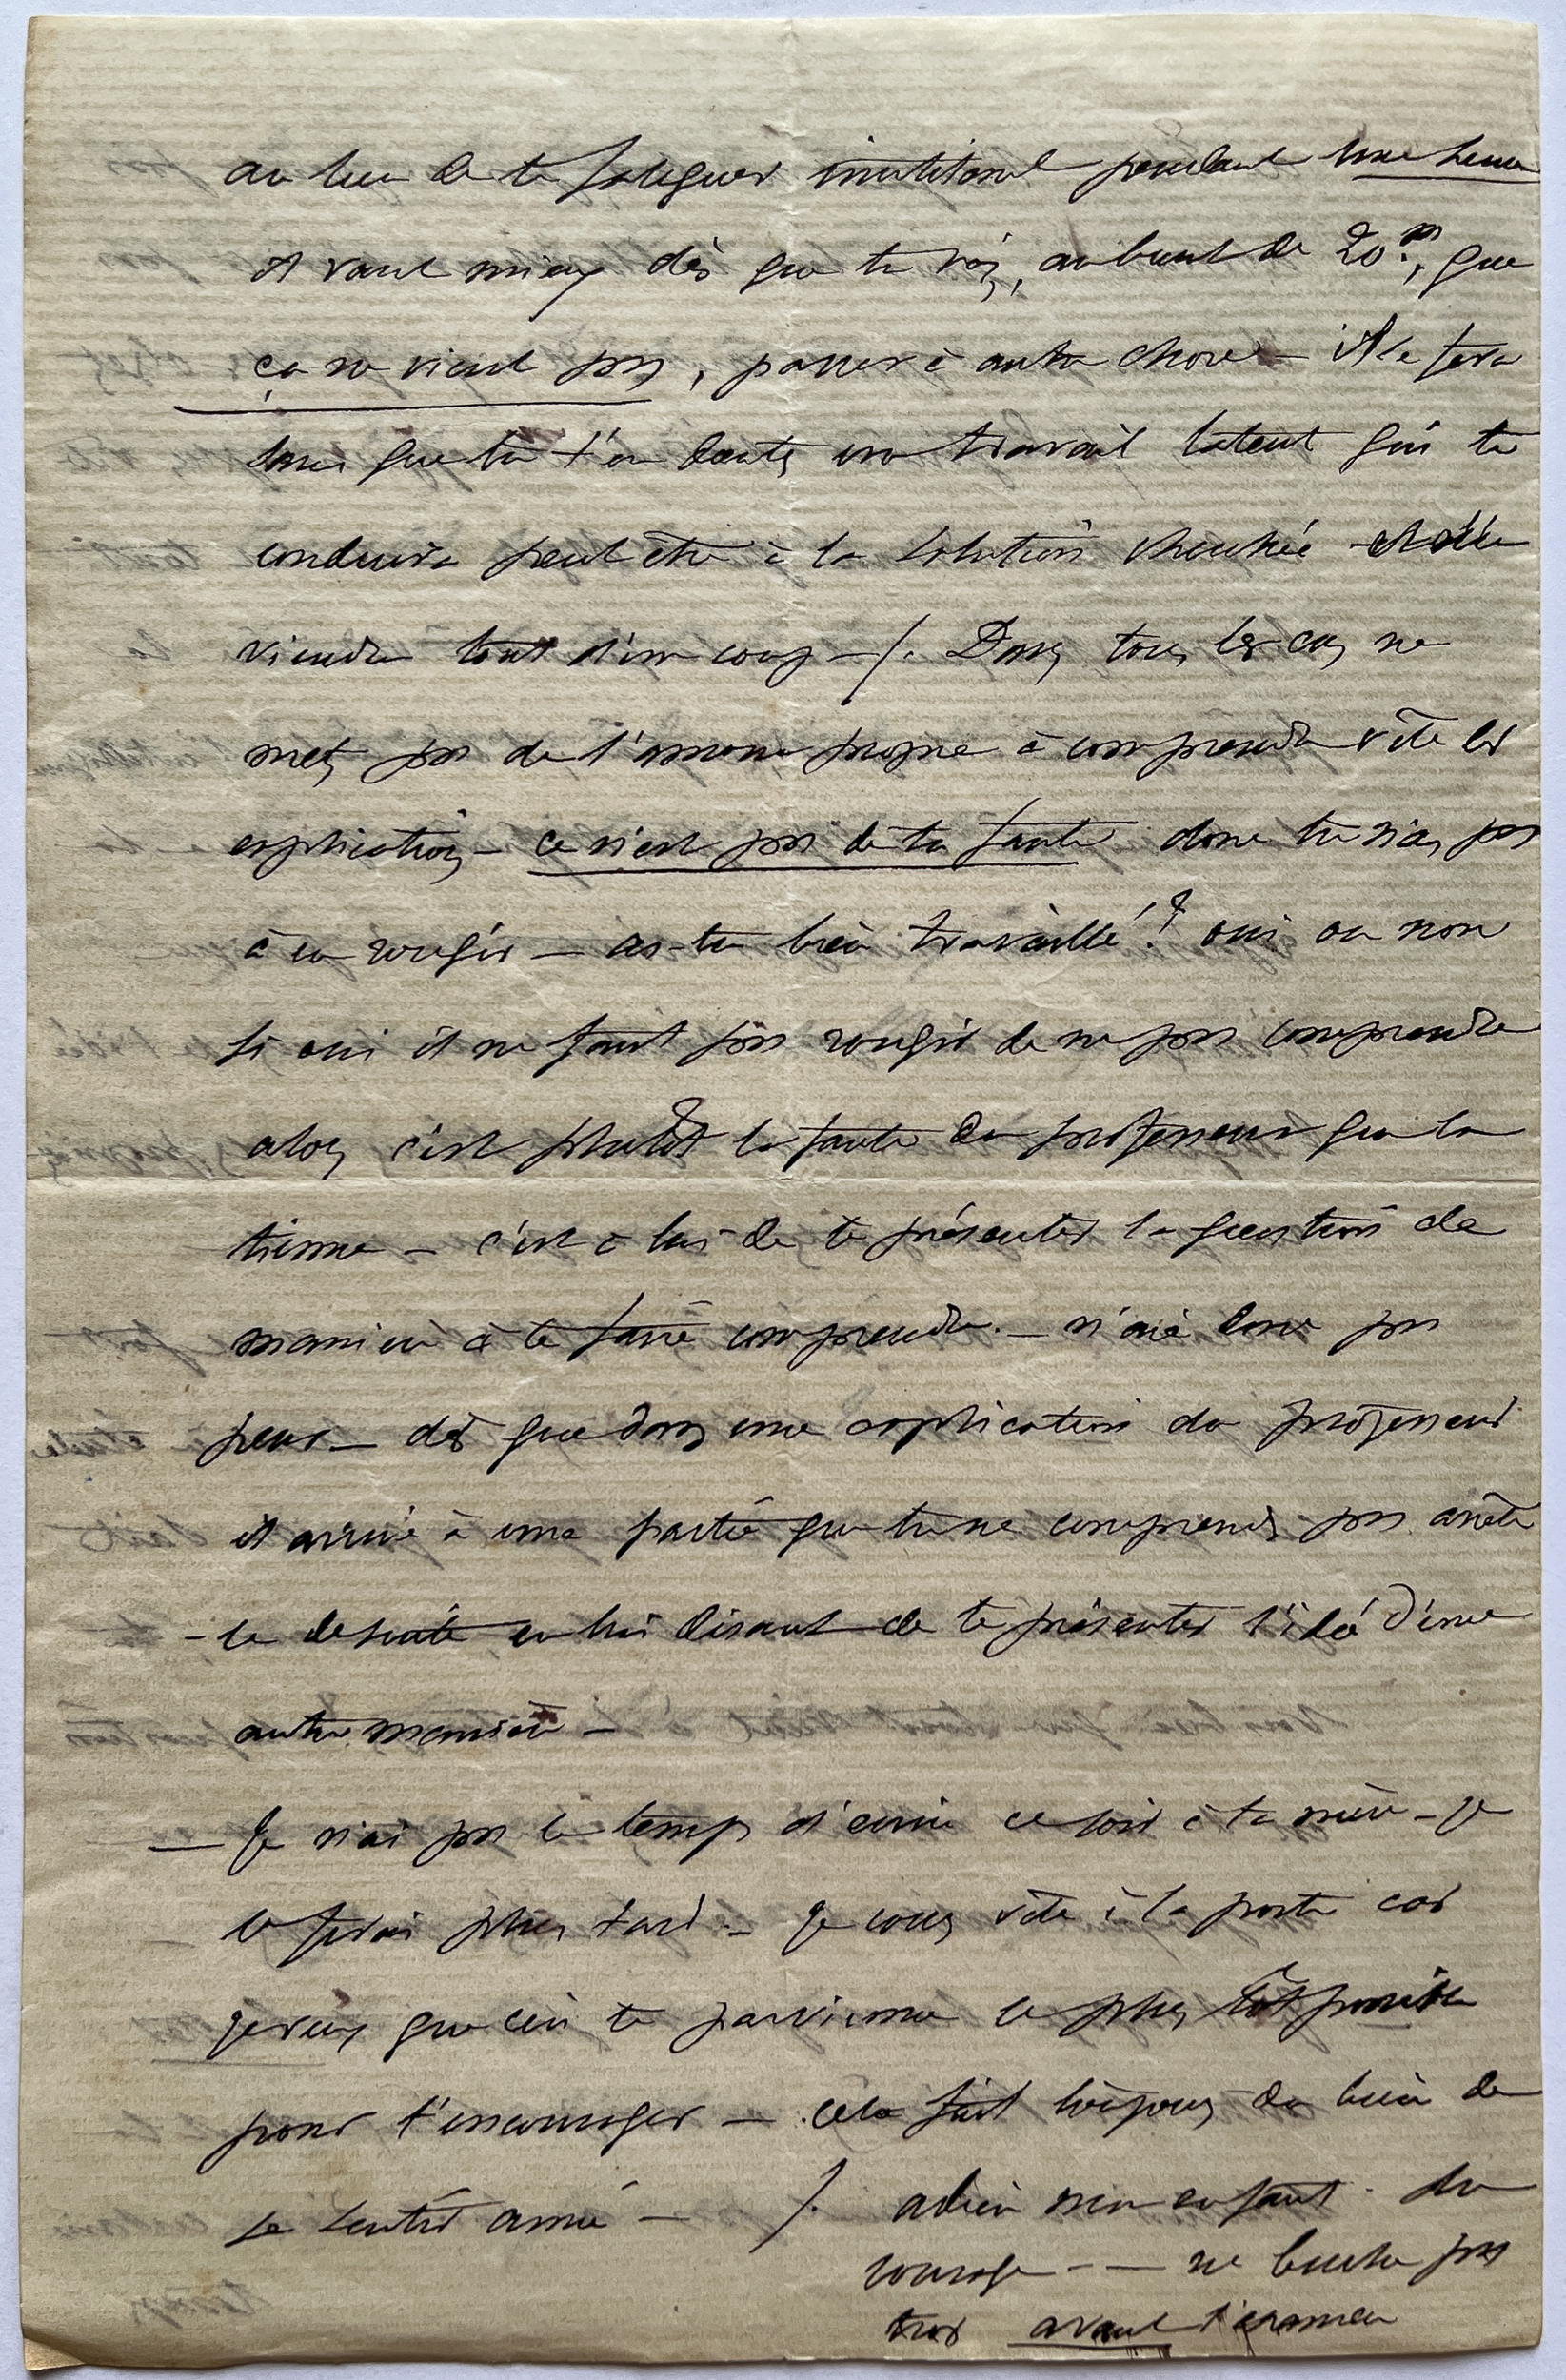 au lieu de te fatiguer inutilement pendant une heure
il vaut mieux dès que tu vois, au bout de 20 m, que
ça ne vient pas, passer à autre chose — il se fera
sans que tu t'en doutes un travail latent qui te
conduira peut être à la solution cherchée et elle
viendra tout d'un coup —/. Dans tous les cas, ne
mets pas de l'amour propre à comprendre vite les
explications — ce n'est pas de ta faute donc tu n'as pas
à en rougir — as-tu bien travaillé? oui ou non
si oui il ne faut pas rougir de ne pas comprendre
alors c'est plutôt la faute du professeur que la
tienne — c'est à lui de te présenter la question de
manière à te faire comprendre. — n'aie donc pas
peur — dès que dans une explication du professeur
il arrive à une partie que tu ne comprends pas arrête
-le de suite en lui disant de te présenter l'idée d'une
autre manière —
— Je n'ai pas le temps d'écrire ce soir à ta mère — je
le ferai plus tard — je cours vite à la poste car
je veux que ceci te parvienne le plus tôt possible
pour t'encourager — cela fait toujours du bien de
se sentir aimé — /. adieu mon enfant - du
courage — — ne bûche pas
trop avant l'examen